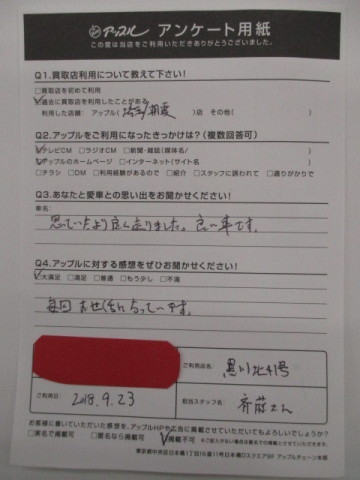 アップル アンケート用紙
この度は当店をご利用いただきありがとうございました。
Q1.買取店利用について教えて下さい!
□買取店を初めて利用
☑過去に買取店を利用したことがある
利用した店舗: アップル( )店 その他( )
Q2.アップルをご利用になったきっかけは?(複数回答可)
☑テレビCM □ラジオCM □新聞・雑誌(媒体名 )
☑アップルのホームページ □インターネット(サイト名 )
□チラシ □DM □利用経験があるので □紹介 □スタッフに誘われて □通りがかりで
Q3.あなたと愛車との思い出をお聞かせください!
車名:
思っていたより良く走りました。良い車です。
Q4.アップルに対する感想をぜひお聞かせください!
☑大満足 □満足 □普通 □もう少し □不満
毎回お世話になっています。
ご利用店名: 黒川北41号
ご利用日: 2018.9.23
担当スタッフ名: 斉藤さん
お書きいただいた感想を、アップルHPや広告に掲載させていただいてもよろしいでしょうか?
□実名で掲載可 □匿名なら掲載可 ☑掲載不可